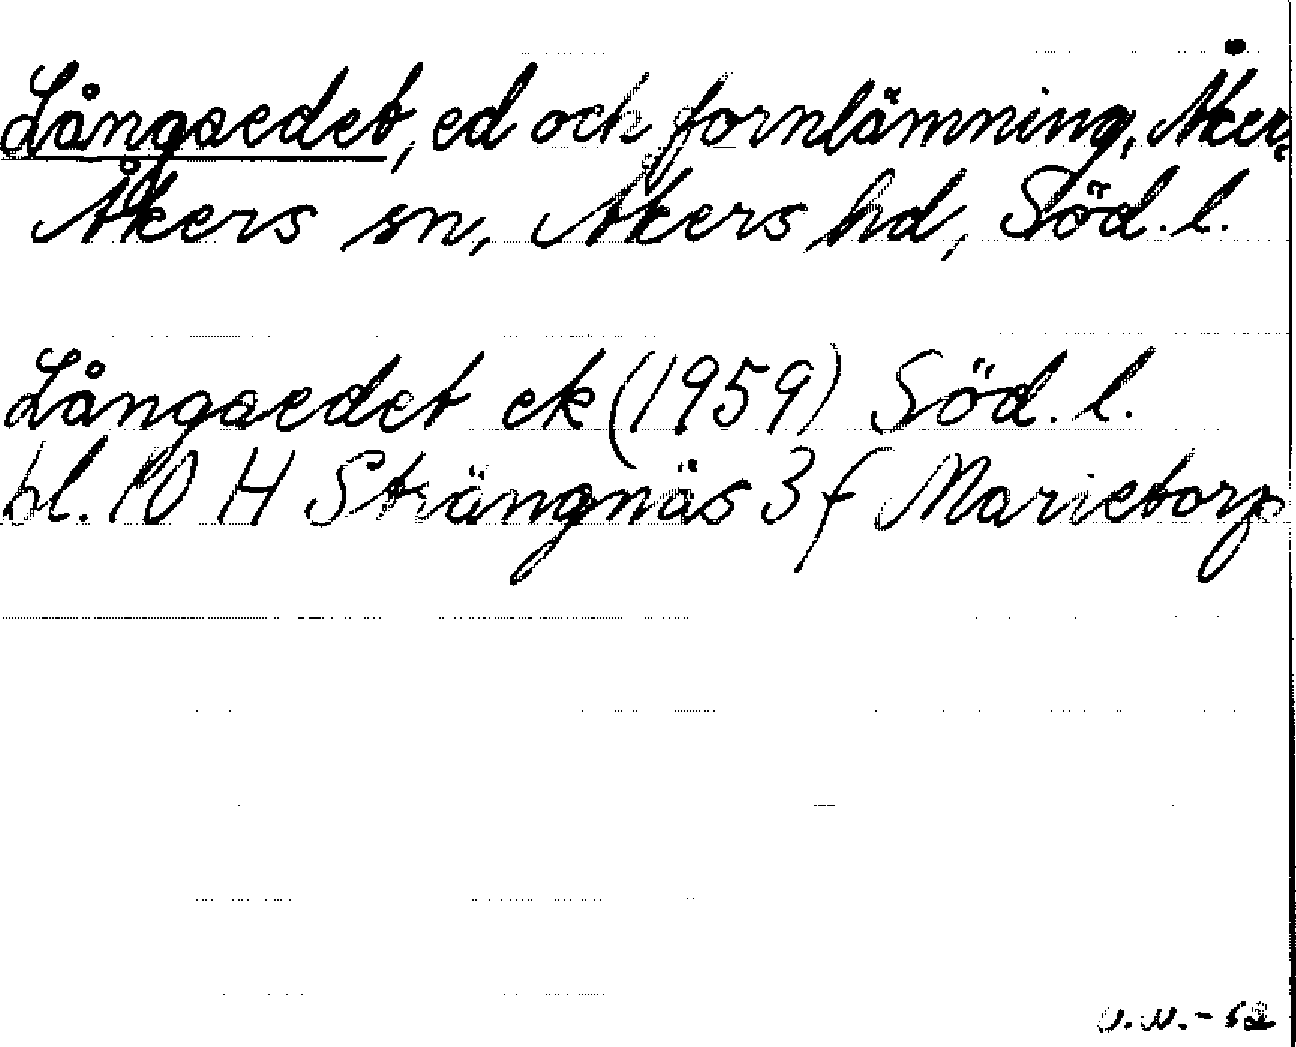 Långaedet, ed och fornlämning, Åkers
Åkers sn, Åkers hd, Söd. l.
Långaedet ek (1959) Söd. l.
bl. 10 H Strängnäs 3 f Marietorp